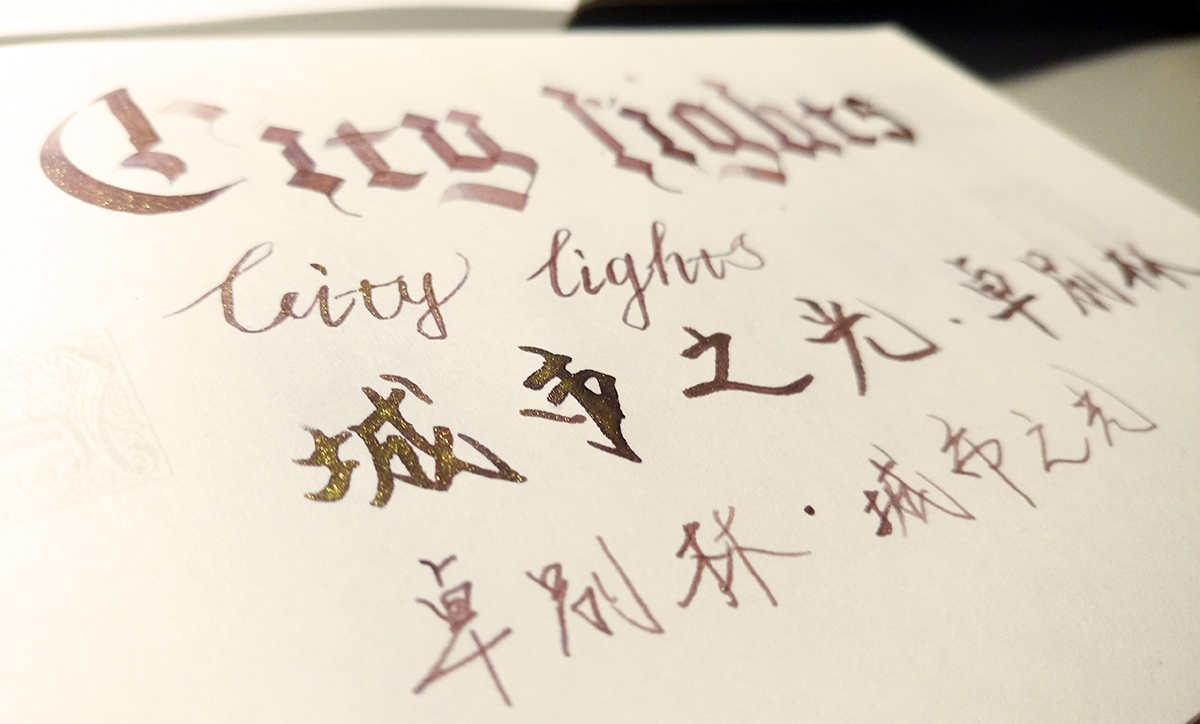 City lights
City lights
城市之光·卓别林
卓别林·城市之光